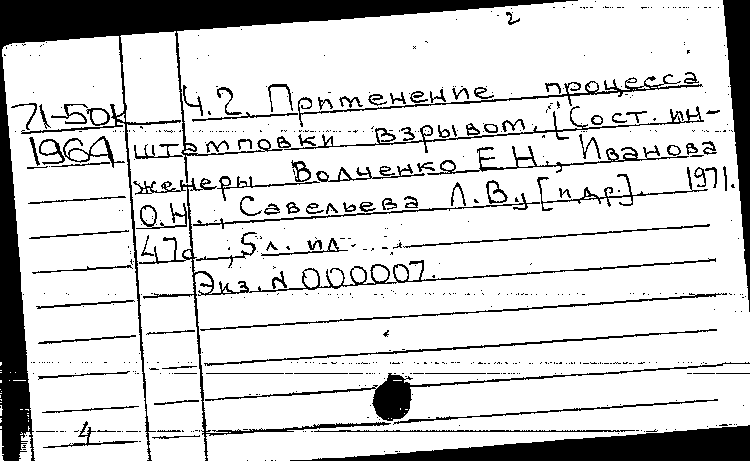 2
71-50К Ч.2. Применение процесса
1964 штамповки взрывом. [Сост. ин-
женеры Волченко Е.Н., Иванова
О.Н., Савельева Л.В., [и др.]. 1971.
47с., 5л. ил.
Экз. N 000007.
4